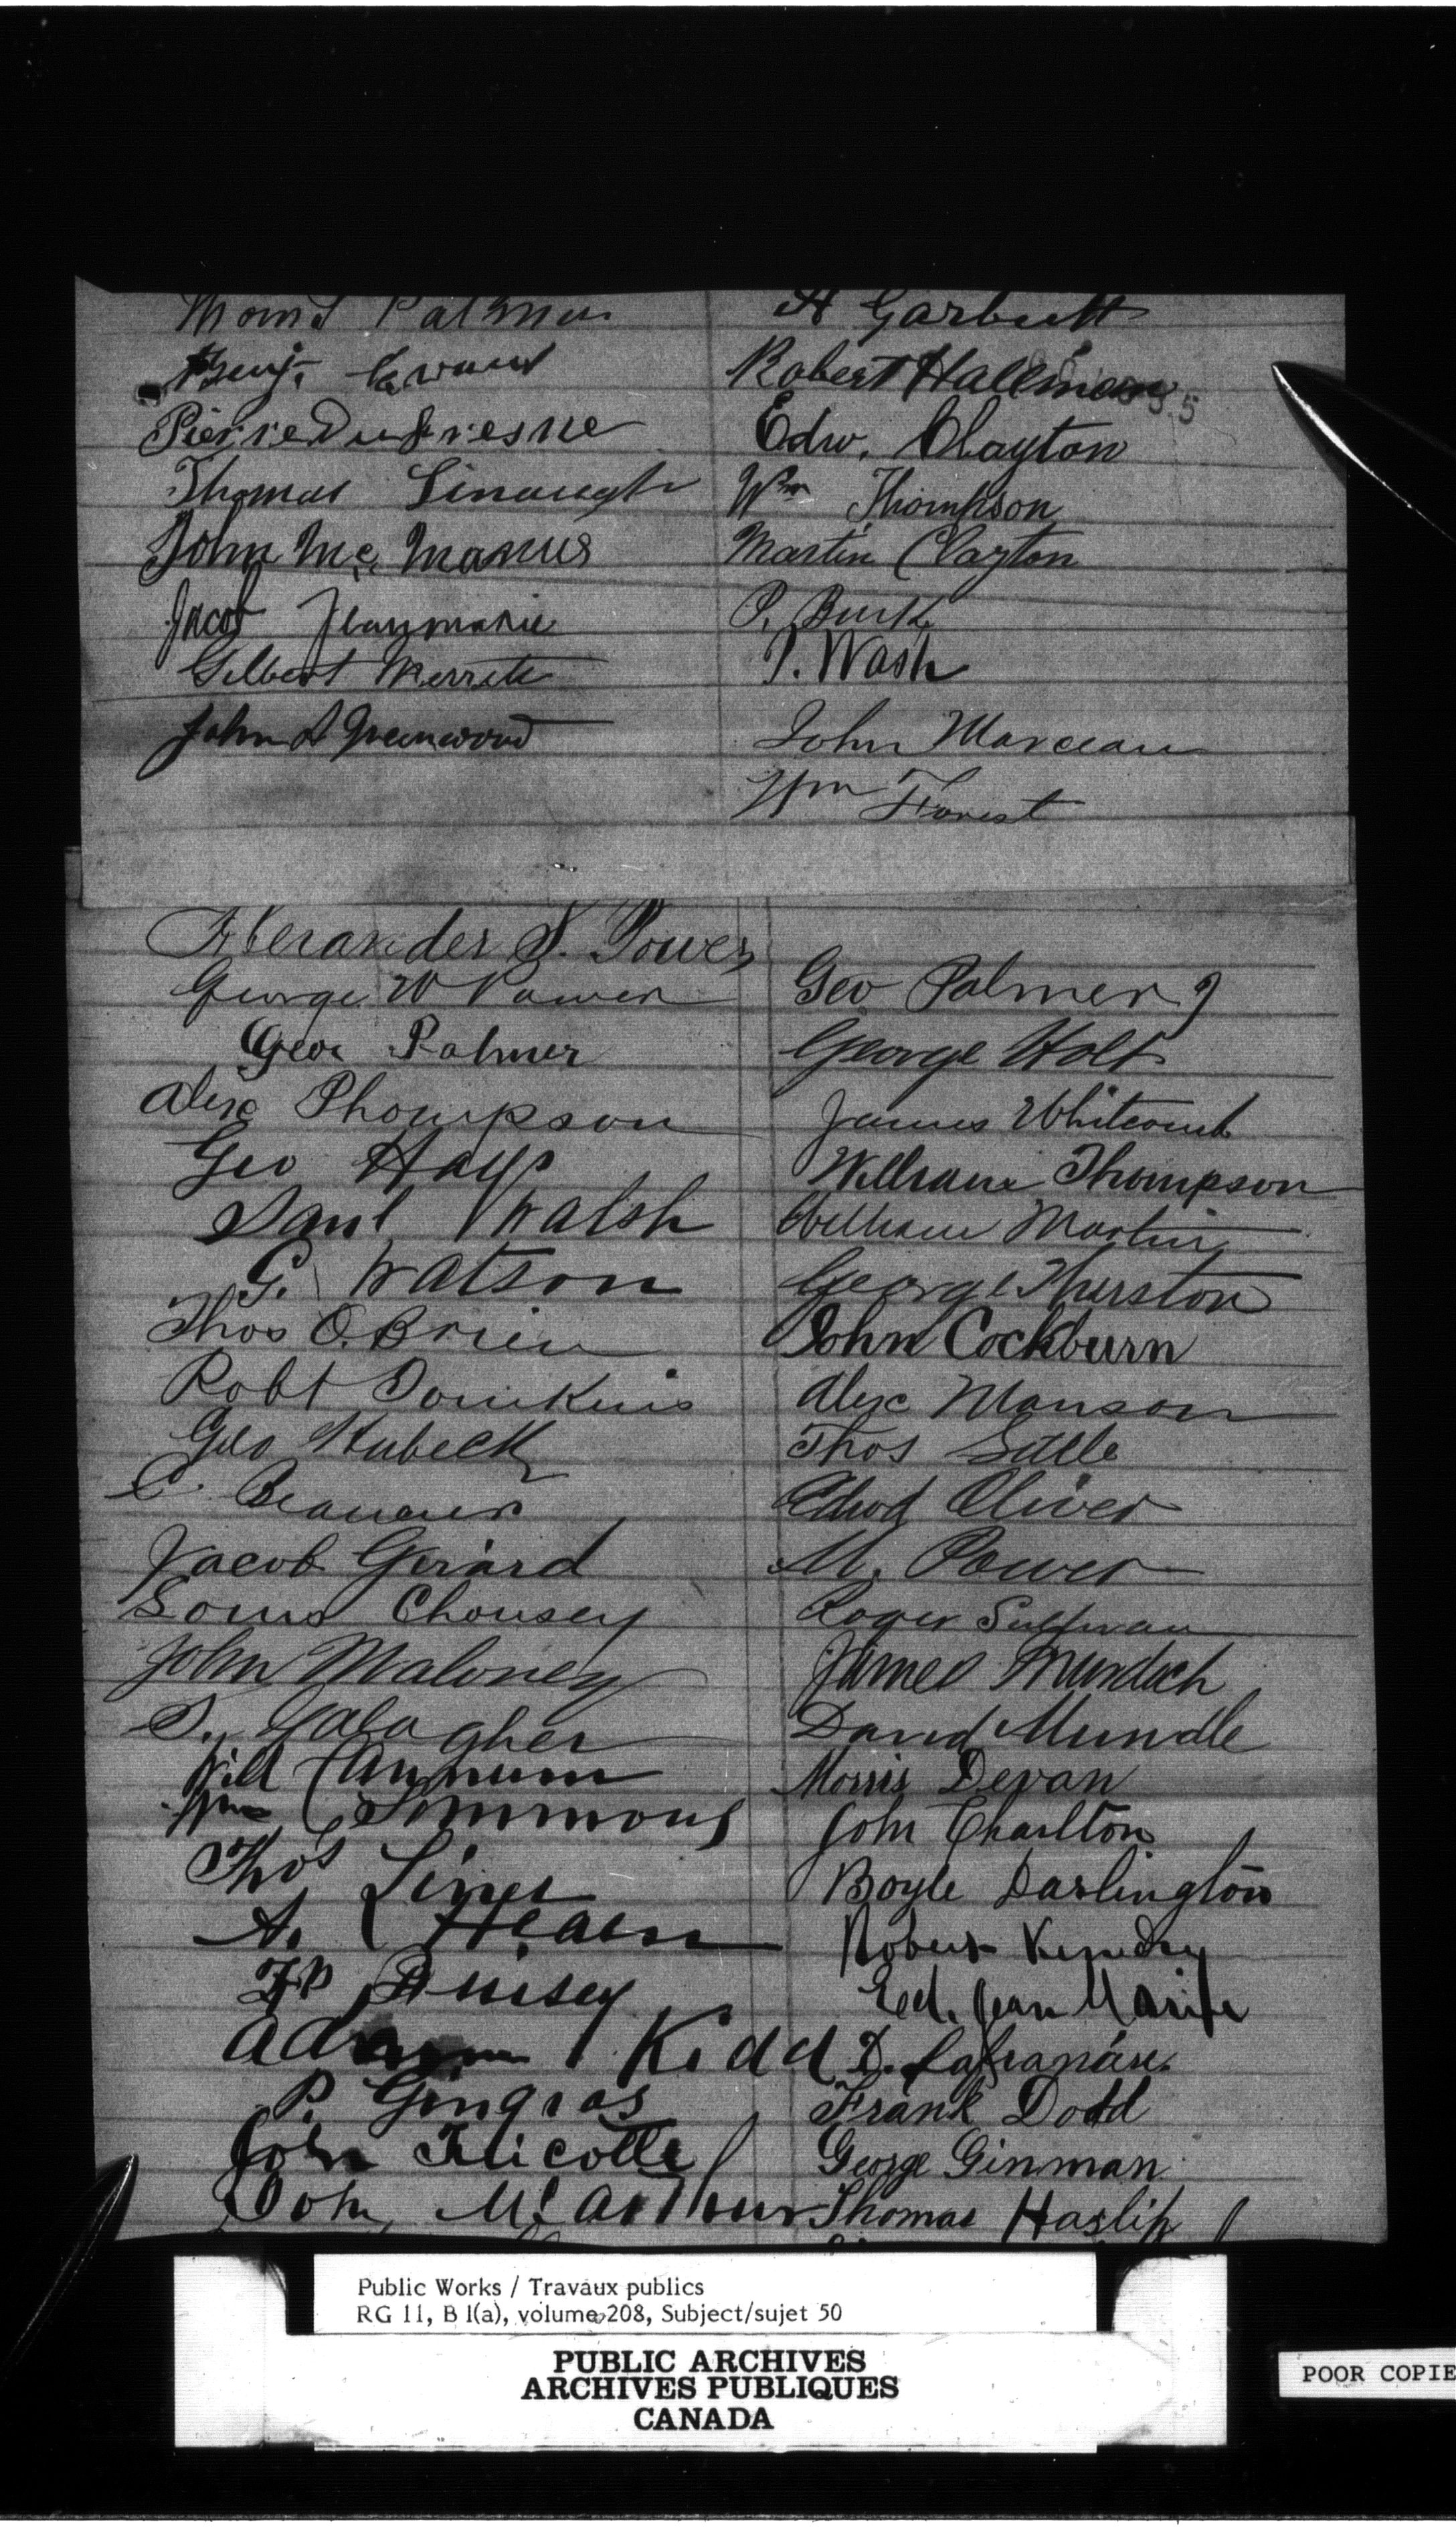 Palmer
Benj. Evans
Pierre Dufresne
Thomas Linaugh
John Mc. Manus
Jacob Jeanmarie
Gilbert Merrett
John A Greenwood
A Garbutt
Robert Hallman
Edw. Clayton
Wm Thompson
Martin Clayton
P. Burk
P. Wash
John Marceau
Wm Forest
Alexander S. Power
George W Power
Geor Palmer
Alex Thompson
Geo Hays
Danl Walsh
G. Watson
Thos O.Brien
Robt
Geo Hubeck
C.
Jacob Gerard
Louis Chousey
John Maloney
Galagher
Will Cannum
Wm Simmons
Thos
A. Hearn
Adam Kidd
P. Gingras
John
John McArthur
Geo Palmer J
George Holt
James Whitcomb
William Thompson
William Martin
George Thurston
John Cockburn
Alex Manson
Thos
Edwd Oliver
M. Power
Roger Sullivan
James Murdoch
David Mundle
Morris Devan
John Charlton
Boyle Darlington
Robert Kendry
Ed. Jean Marie
D.
Frank Dodd
George Ginman
Thomas Haslip
Public Works / Travaux publics
RG 11, B 1(a), volume 208, Subject/sujet 50
PUBLIC ARCHIVES
ARCHIVES PUBLIQUES
CANADA
POOR COPIE